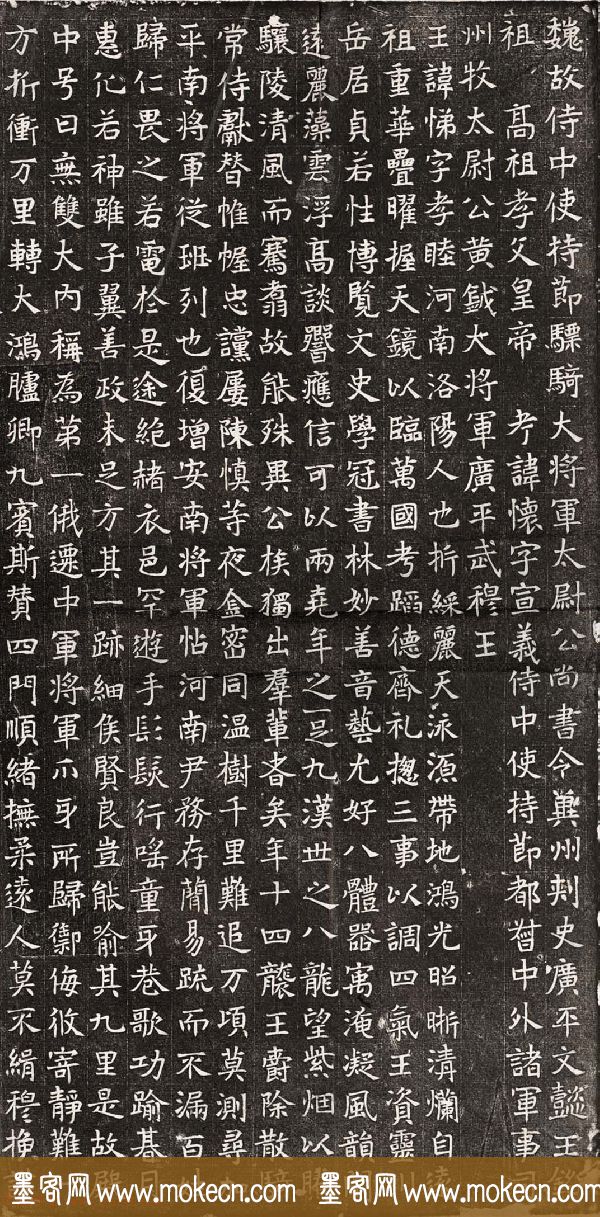 魏故侍中使持節驃騎大將軍太尉公尚書令冀州刺史廣平文懿王銘
祖 高祖孝文皇帝 考諱懷字宣義侍中使持節都督中外諸軍事司
州牧太尉公黃鉞大將軍廣平武穆王
王諱悌字孝睦河南洛陽人也折綵麗天泳源帶地鴻光昭晰清爛自
祖重華疊曜握天鏡以臨萬國考蹈德齊礼摠三事以調四氣王資靈川
岳居貞若性博覽文史學冠書林妙善音藝尤好八體器寓淹凝風韻閑
遠麗藻雲浮高談響應信可以兩堯年之一足九漢世之八龍望紫烟以
驤陵清風而騫翥故能殊異公族獨出羣輩者矣年十四襲王爵除散騎
常侍獻替帷幄忠讜屢陳慎等夜金密同溫樹千里難追万頃莫測尋
平南將軍從班列也復增安南將軍帖河南尹務存簡易疏而不漏百
歸仁畏之若電於是途絶赭衣邑罕遊手髟髮行謠童牙巷歌功踰朞月
惠化若神雖子翼善政未足方其一跡細侯賢良豈能喻其九里是故
中号曰無雙大內稱為第一俄遷中軍將軍爪牙所歸禦侮攸寄靜難
方折衝万里轉大鴻臚卿九賓斯贊四門順緒撫柔遠人莫不緝穆挽
墨客网 www.mokecn.com 墨客网 www.mokecn.com